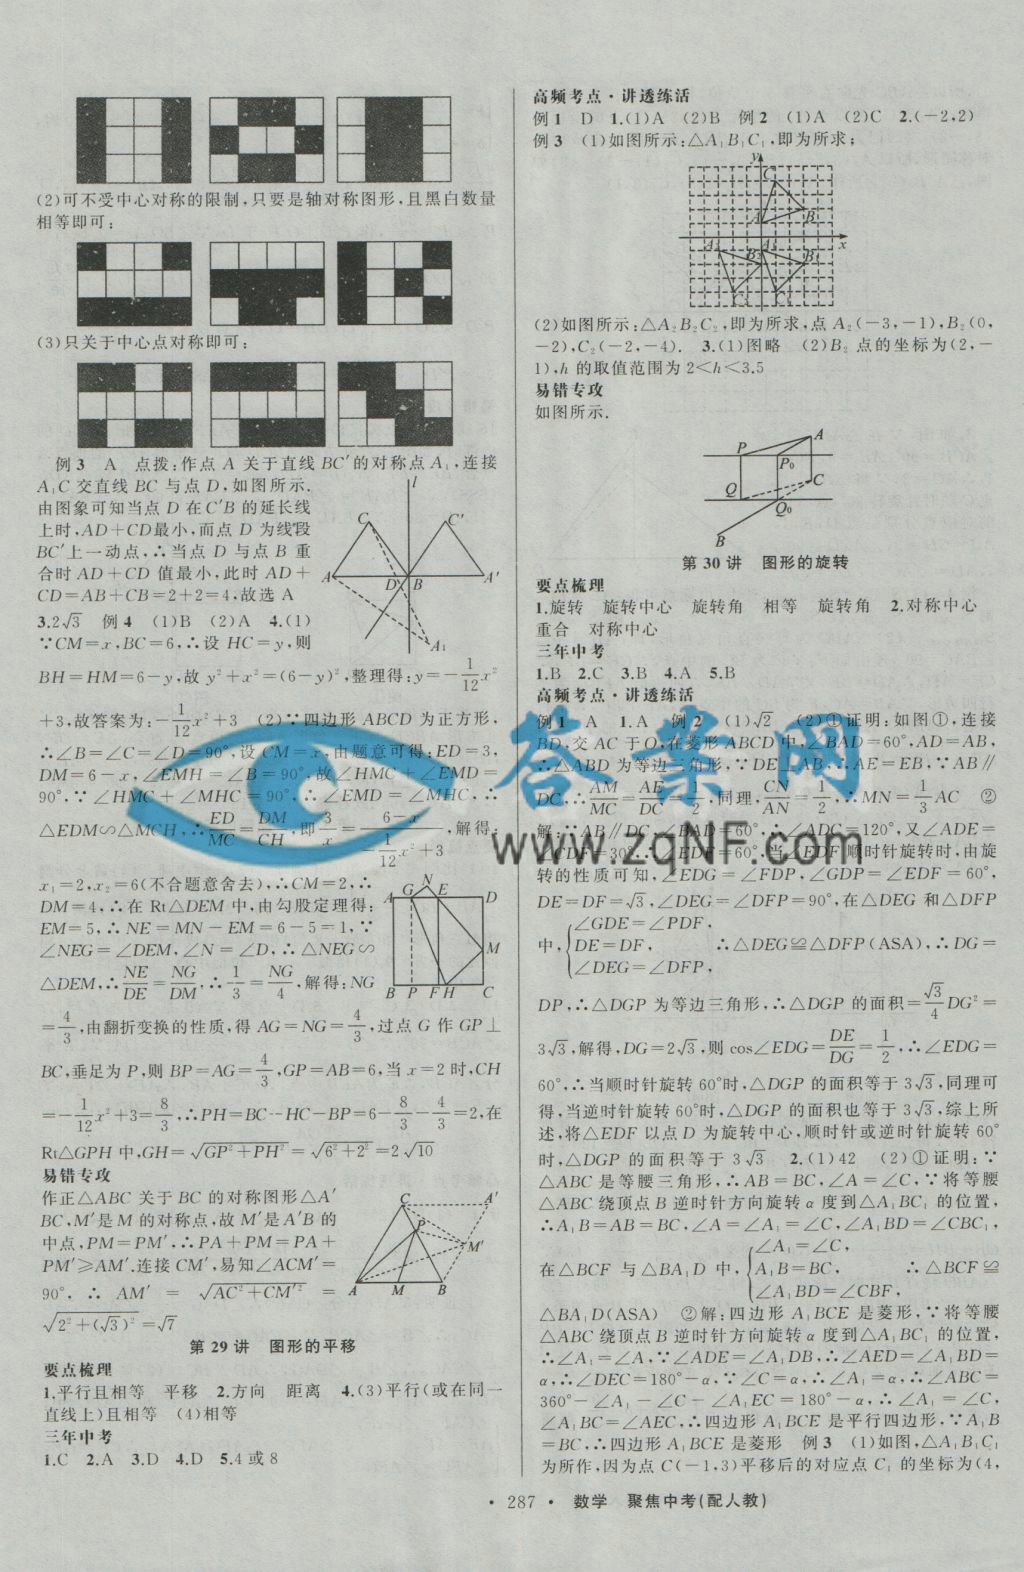 (2)可不受中心对称的限制,只要是轴对称图形,且黑白数量
相等即可:
(3)只关于中心点对称即可:
例3 A 点拨:作点 A 关于直线 BC′的对称点 A₁,连接
A₁C 交直线 BC 与点 D,如图所示.
由图象可知当点 D 在 C′B 的延长线
上时,AD+CD最小,而点 D 为线段
BC′上一动点,∴当点 D 与点 B 重
合时 AD+CD 值最小,此时 AD+
CD=AB+CB=2+2=4,故选 A
3.2√3 例4 (1)B (2)A 4.(1)
∵CM=x,BC=6,∴设 HC=y,则
BH=HM=6-y,故 y²+x²=(6-y)²,整理得:y=-1/12x²
+3,故答案为:-1/12x²+3 (2)∵四边形 ABCD 为正方形,
∴∠B=∠C=∠D=90°,设 CM=x,由题意可得:ED=3,
DM=6-x,∠EMH=∠B=90°,故∠HMC+∠EMD=
90°,∵∠HMC+∠MHC=90°,∴∠EMD=∠MHC,∴
△EDM∽△MCH,∴ED/MC=DM/CH,即3/x=(6-x)/(-1/12x²+3),解得:
x₁=2,x₂=6(不合题意舍去),∴CM=2,∴
DM=4,∴在 Rt△DEM 中,由勾股定理得:
EM=5,∴NE=MN-EM=6-5=1,∵
∠NEG=∠DEM,∠N=∠D,∴△NEG∽
△DEM,∴NE/DE=NG/DM,∴1/3=NG/4,解得:NG
=4/3,由翻折变换的性质,得 AG=NG=4/3,过点 G 作 GP⊥
BC,垂足为 P,则 BP=AG=4/3,GP=AB=6,当 x=2 时,CH
=-1/12x²+3=8/3,∴PH=BC-HC-BP=6-8/3-4/3=2,在
Rt△GPH 中,GH=√(GP²+PH²)=√(6²+2²)=2√10
易错专攻
作正△ABC 关于 BC 的对称图形△A′
BC,M′是 M 的对称点,故 M′是 A′B 的
中点,PM=PM′,∴PA+PM=PA+
PM′≥AM′.连接 CM′,易知∠ACM′=
90°,∴AM′=√(AC²+CM′²)=
√(2²+(√3)²)=√7
第 29 讲 图形的平移
要点梳理
1.平行且相等 平移 2.方向 距离 4.(3)平行(或在同一
直线上)且相等 (4)相等
三年中考
1.C 2.A 3.D 4.D 5.4 或 8
高频考点·讲透练活
例1 D 1.(1)A (2)B 例2 (1)A (2)C 2.(-2,2)
例3 (1)如图所示:△A₁B₁C₁,即为所求;
(2)如图所示:△A₂B₂C₂,即为所求,点 A₂(-3,-1),B₂(0,
-2),C₂(-2,-4). 3.(1)图略 (2)B₂ 点的坐标为(2,-
1),h 的取值范围为 2<h<3.5
易错专攻
如图所示.
第 30 讲 图形的旋转
要点梳理
1.旋转 旋转中心 旋转角 相等 旋转角 2.对称中心
重合 对称中心
三年中考
1.B 2.C 3.B 4.A 5.B
高频考点·讲透练活
例1 A 1.A 例2 (1)√2 (2)①证明:如图①,连接
BD,交 AC 于 O,在菱形 ABCD 中,∠BAD=60°,AD=AB,
∴△ABD 为等边三角形,∵DE⊥AB,∴AE=EB,∵AB∥
DC,∴AM/MC=AE/DC=1/2,同理,CN/AN=1/2,∴MN=1/3AC ②
解:∵AB∥DC,∠BAD=60°,∴∠ADC=120°,又∠ADE=
∠CDF=30°,∴∠EDF=60°,当∠EDF 顺时针旋转时,由旋
转的性质可知,∠EDG=∠FDP,∠GDP=∠EDF=60°,
DE=DF=√3,∠DEG=∠DFP=90°,在△DEG 和△DFP
中,{∠GDE=∠PDF,
DE=DF, ∴△DEG≌△DFP(ASA),∴DG=
∠DEG=∠DFP,
DP,∴△DGP 为等边三角形,∴△DGP 的面积=√3/4DG²=
3√3,解得,DG=2√3,则 cos∠EDG=DE/DG=1/2,∴∠EDG=
60°,∴当顺时针旋转60°时,△DGP 的面积等于 3√3,同理可
得,当逆时针旋转60°时,△DGP 的面积也等于 3√3,综上所
述,将∠EDF 以点 D 为旋转中心,顺时针或逆时针旋转 60°
时,△DGP 的面积等于 3√3 2.(1)42 (2)①证明:∵
△ABC 是等腰三角形,∴AB=BC,∠A=∠C,∵将等腰
△ABC 绕顶点 B 逆时针方向旋转 α 度到△A₁BC₁ 的位置,
∴A₁B=AB=BC,∠A=∠A₁=∠C,∠A₁BD=∠CBC₁,
在△BCF 与△BA₁D 中,{∠A₁=∠C,
A₁B=BC, ∴△BCF≌
∠A₁BD=∠CBF,
△BA₁D(ASA) ②解:四边形 A₁BCE 是菱形,∵将等腰
△ABC 绕顶点 B 逆时针方向旋转 α 度到△A₁BC₁ 的位置,
∴∠A₁=∠A,∵∠ADE=∠A₁DB,∴∠AED=∠A₁BD=
α,∴∠DEC=180°-α,∵∠C=α,∴∠A₁=α,∴∠ABC=
360°-∠A₁-∠C-∠A₁EC=180°-α,∴∠A₁=∠C,
∠A₁BC=∠AEC,∴四边形 A₁BCE 是平行四边形,∵A₁B
=BC,∴四边形 A₁BCE 是菱形 例3 (1)如图,△A₁B₁C₁
为所作,因为点 C(-1,3)平移后的对应点 C₁ 的坐标为(4,
• 287 • 数学 聚焦中考(配人教)
答案网
www.zqNF.com